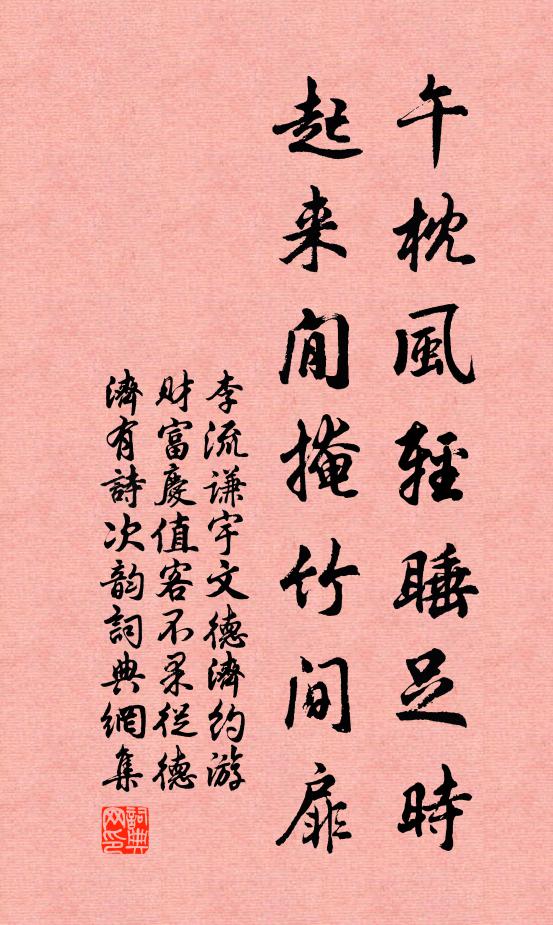 午枕風輕睡足時
起来閒掩竹間扉
李流谦宇文德濟約游
财富慶值客不果從德
濟有詩次韵詞典網集
詞典
网印